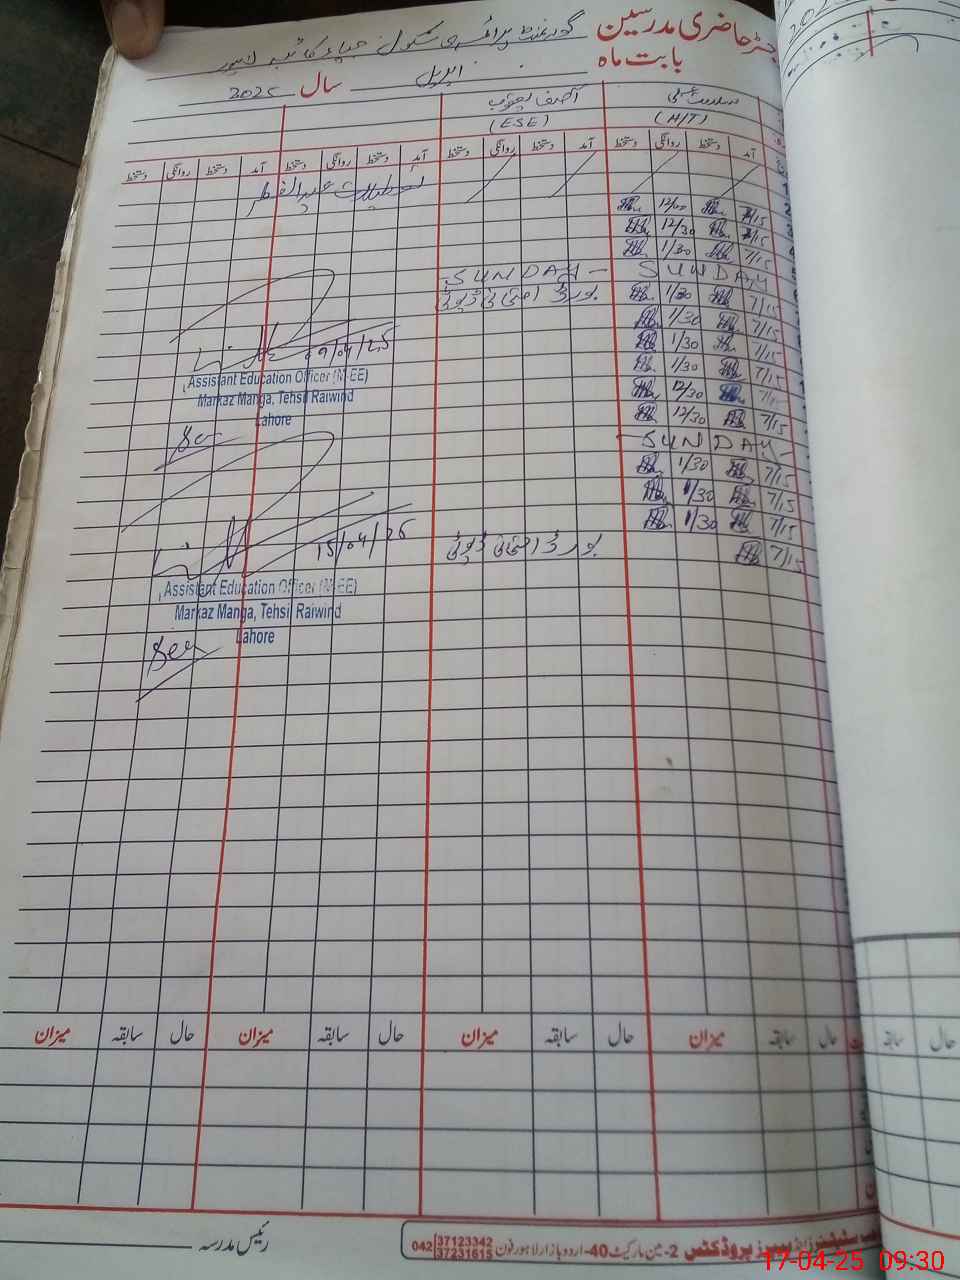 رجسٹر حاضری مدرسین گورنمنٹ پرائمری سکول
بابت ماہ اپریل سال 2025
آصف یعقوب
(H/T) (ESE)
آمد دستخط روانگی دستخط آمد دستخط روانگی دستخط آمد دستخط روانگی دستخط آمد دستخط روانگی دستخط
تعطیلات عیدالفطر
7/15 12/00
7/15 12/30
7/15 1/30
SUNDAY -SUNDAY-
7/15 1/30 بورڈ امتحانی ڈیوٹی
7/15 1/30
7/15 1/30
7/15 1/30
7/15 12/30
7/15 12/30
SUNDAY
7/15 1/30
7/15 1/30
7/15 1/30
7/15 بورڈ امتحانی ڈیوٹی
09/04/25
Assistant Education Officer (M-EE)
Markaz Manga, Tehsil Raiwind
Lahore
15/04/25
Assistant Education Officer (M-EE)
Markaz Manga, Tehsil Raiwind
Lahore
حال سابقہ میزان حال سابقہ میزان حال سابقہ میزان حال سابقہ میزان
حال سابقہ
رئیس مدرسہ
پیپرز پروڈکٹس 2-مین مارکیٹ 40-اردو بازار لاہور فون 042 37123342
37231615
17-04-25 09:30